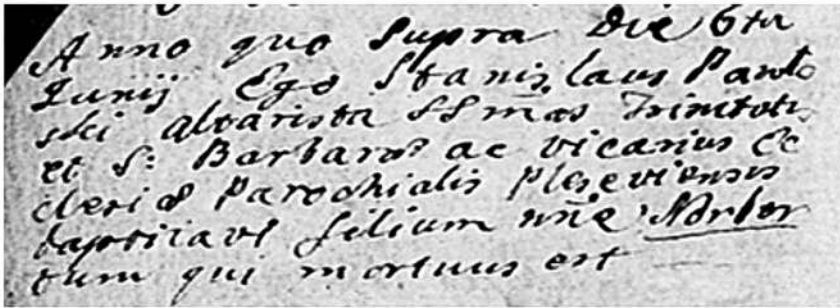 Anno quo supra Die 6ta
Junij Ego Stanislaus Pawło
ski altarista SSmae Trinitatis
et S: Barbarae ac vicarius Ec
clesiae Parochialis Pleseviensis
baptisavi filium nñe Norber
tum qui mortuus est